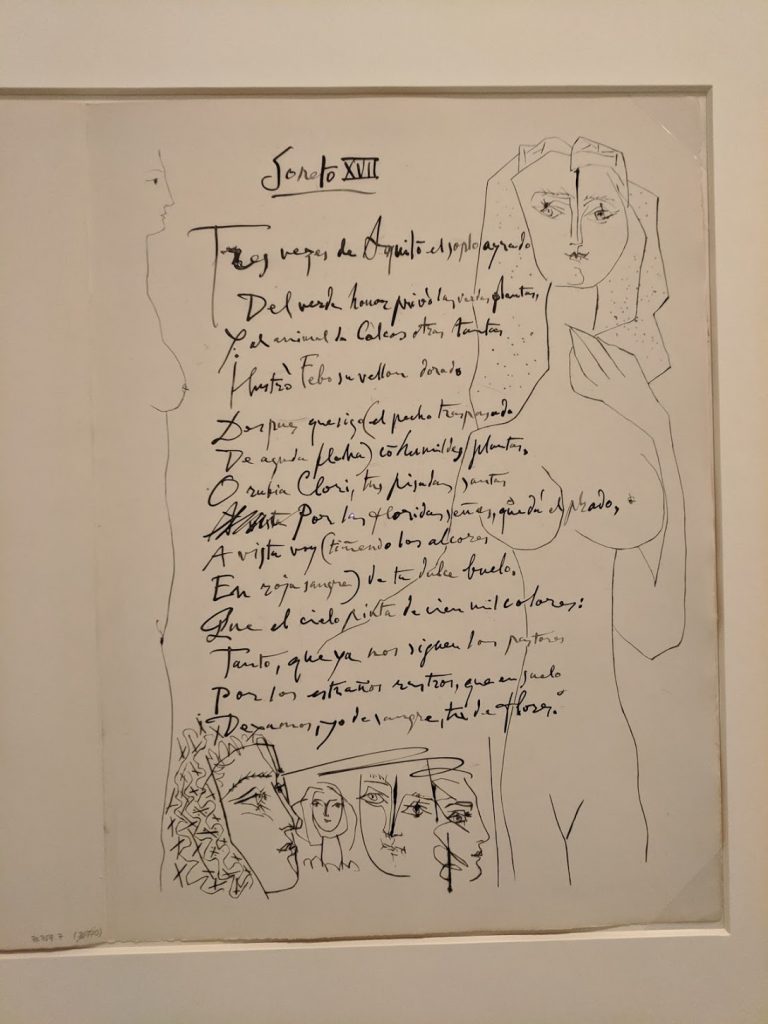 Soneto XVII
Tres vezes de Aquilō el soplo ayrado
Del verde honor privò las verdes plantas,
Y al animal de Colcos otras tantas
Ilustrò Febo su vellon dorado
Despues que sigo (el pecho traspasado
De aguda flecha) cō humildes plantas,
O rubia Clori, tus pisadas santas
Por las floridas señas, que dá el prado,
A vista voy (tiñendo los alcores
En roja sangre) de tu dulce buelo.
Que el cielo pinta de cien mil colores:
Tanto, que ya nos siguen los pastores
Por los estraños rastros, que en suelo
Dexamos, yo de sangre, tu de flores.